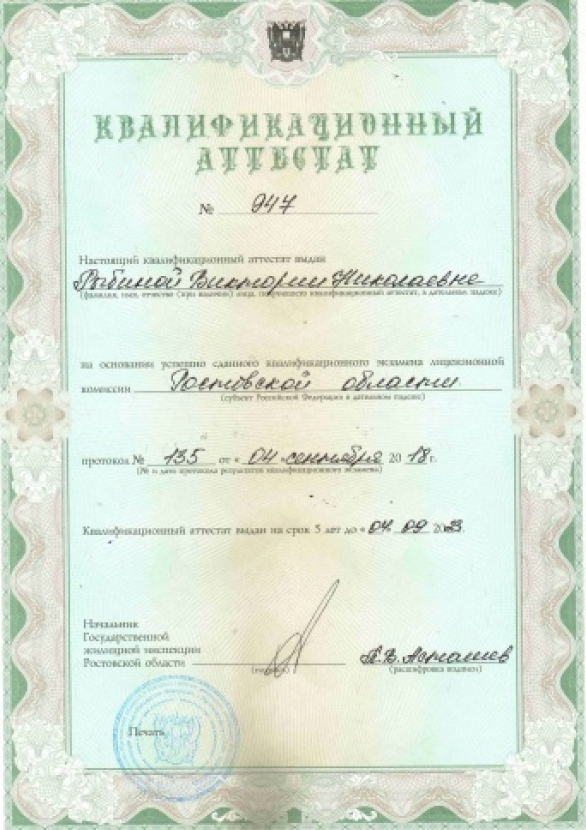 КВАЛИФИКАЦИОННЫЙ
АТТЕСТАТ
№ 947
Настоящий квалификационный аттестат выдан
Рыбиной Виктории Николаевне
(фамилия, имя, отчество (при наличии) лица, получившего квалификационный аттестат, в дательном падеже)
на основании успешно сданного квалификационного экзамена лицензионной
комиссии Ростовской области
(субъект Российской Федерации в дательном падеже)
протокол № 135 от « 04 » сентября 20 18 г.
(№ и дата протокола результатов квалификационного экзамена)
Квалификационный аттестат выдан на срок 5 лет до « 04 » 09 2023.
Начальник
Государственной
жилищной инспекции
Ростовской области
(подпись)
(расшифровка подписи)
Печать